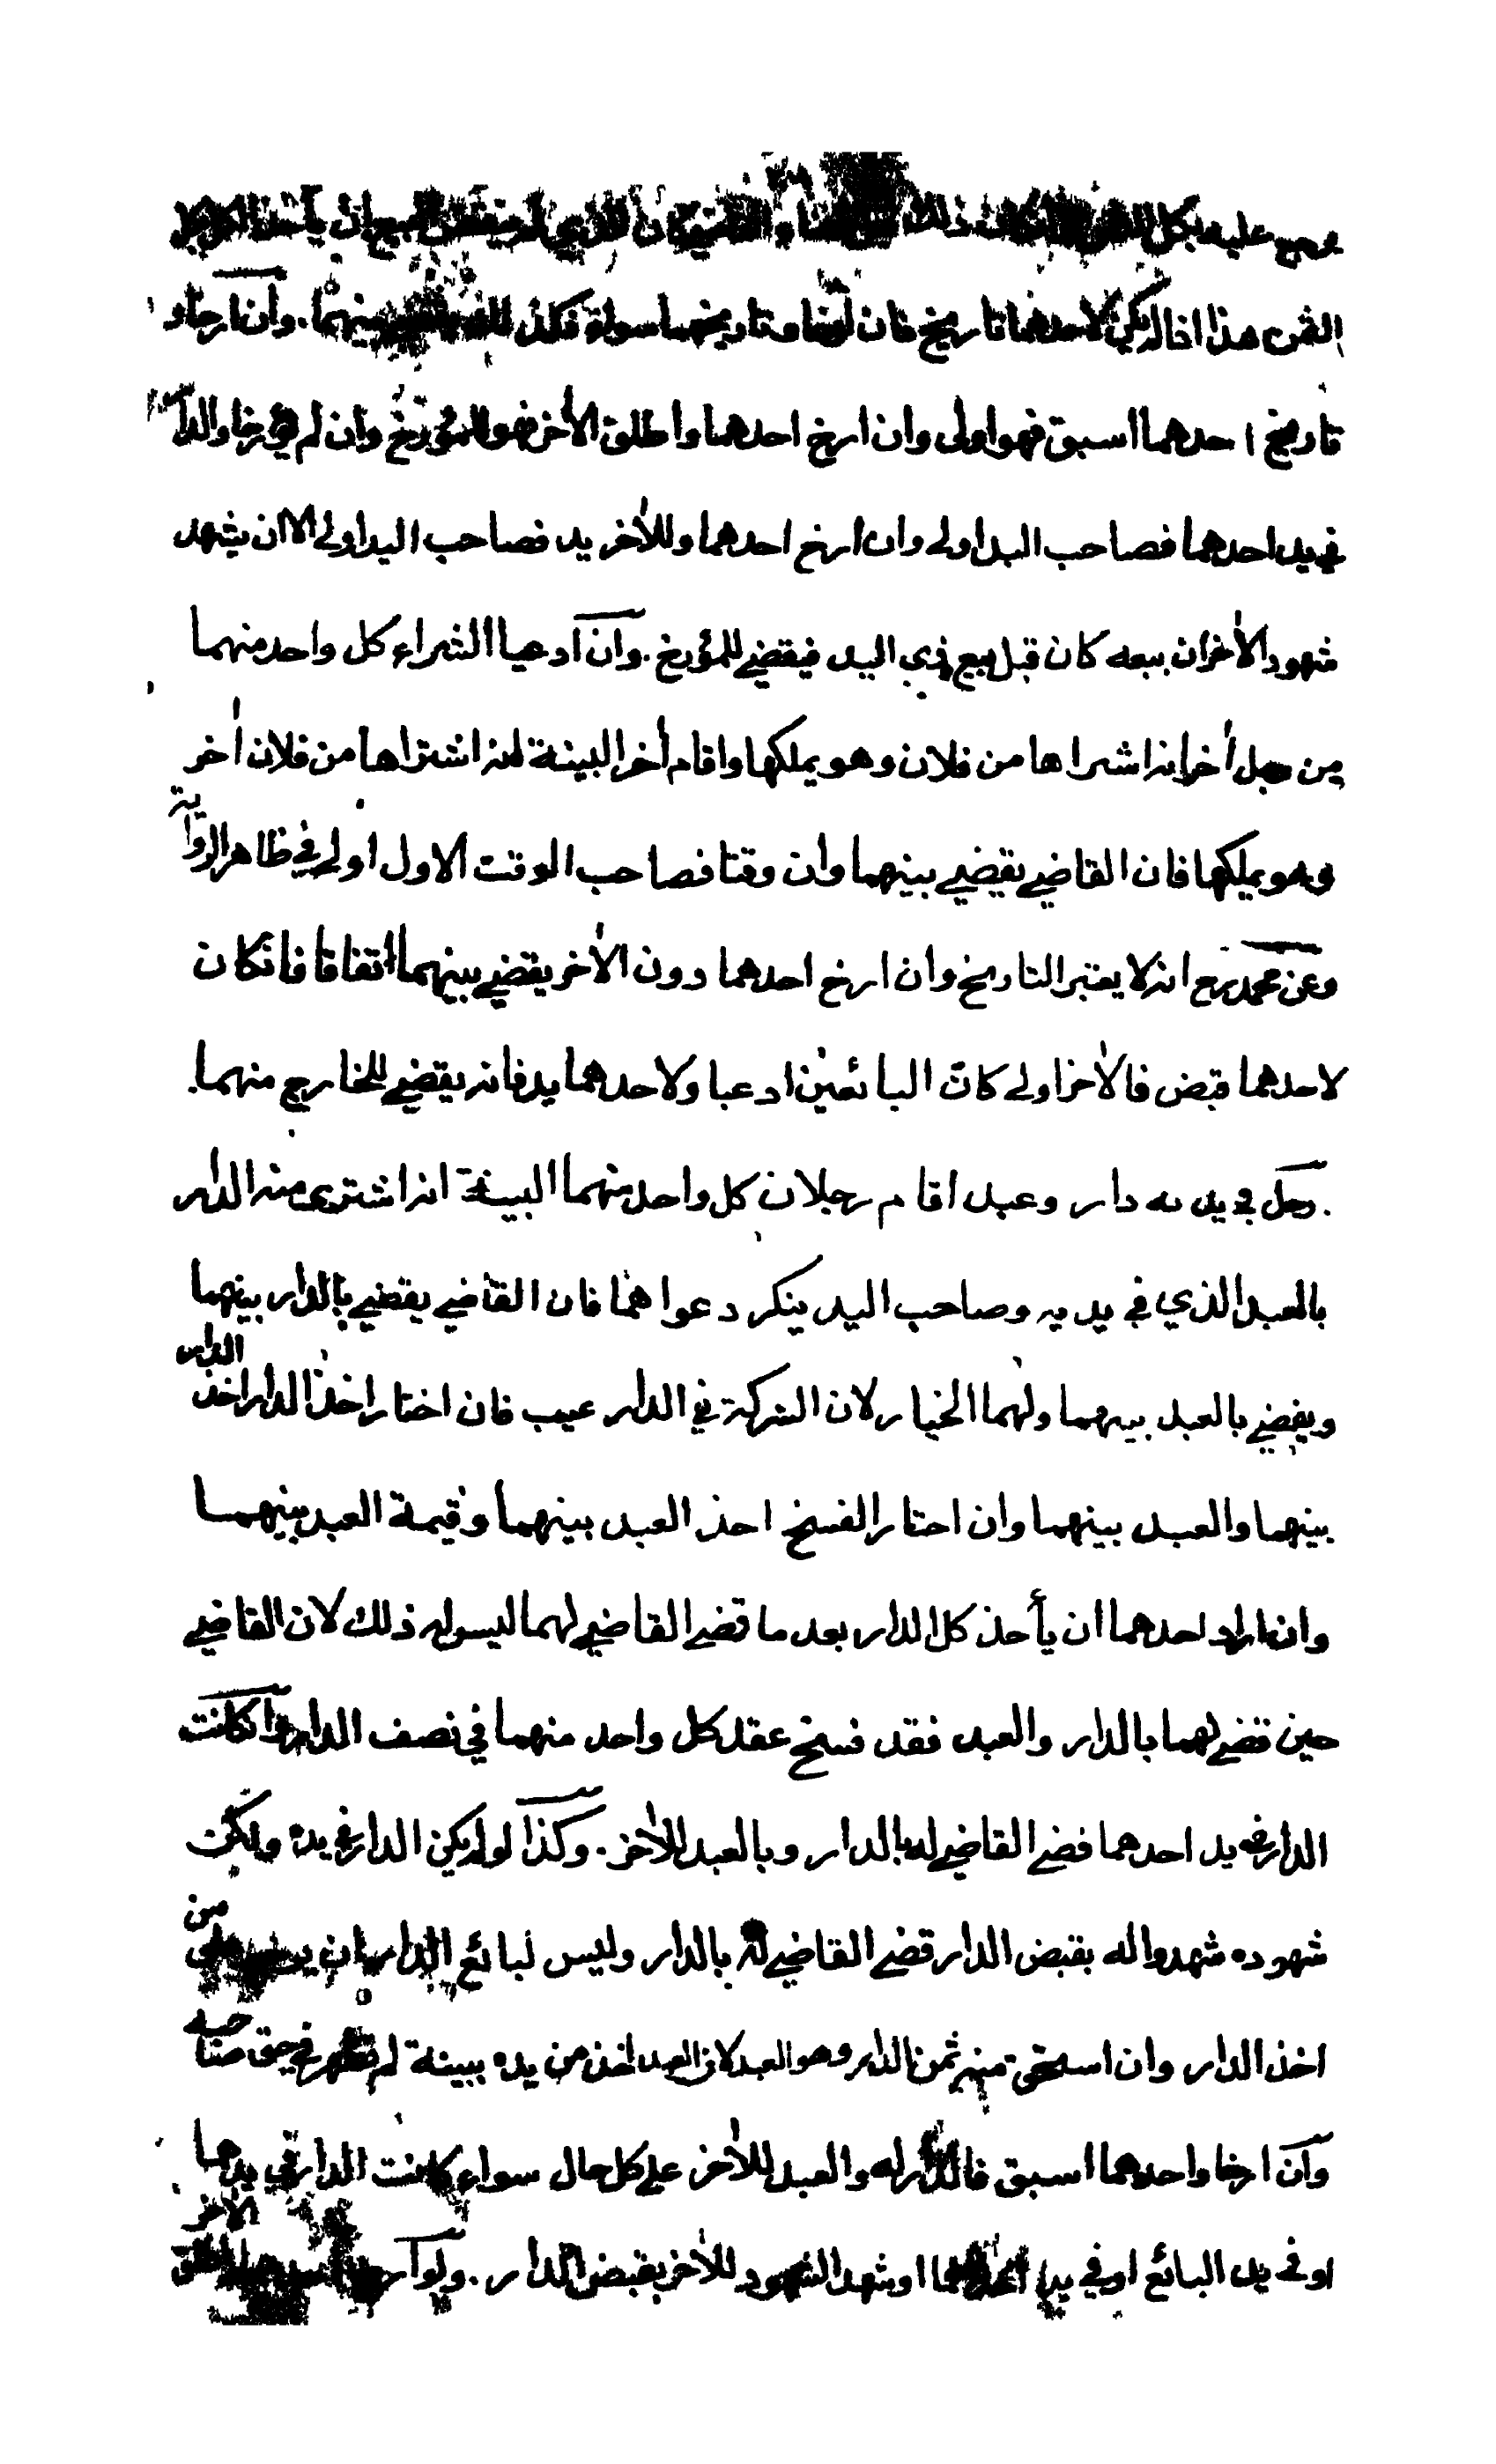 عليه بكل ذلك كان الذي لم ينقض البيع ان يأخذ الكل بكل
الثمن هذا اذا لم يكن لاحدهما تاريخ فان وتاريخهما سواء فكذلك بينهما. وان ارخا و
تاريخ احدهما اسبق فهو اولى وان ارخ احدهما واطلق الأخر فهو للمؤرخ وان لم يؤرخا والدار
في يد احدهما فصاحب اليد اولى وان ارخ احدهما وللأخر يد فصاحب اليد اولى الا ان يشهد
شهود الأخر ان بيعه كان قبل بيع ذي اليد فيقضي للمؤرخ. وان ادعيا الشراء كل واحد منهما
من رجل أخر انه اشتراها من فلان وهو يملكها واقام أخر البينة انه اشتراها من فلان أخر
وهو يملكها فان القاضي يقضي بينهما وان وقتا فصاحب الوقت الاول اولى في ظاهر الرواية
وعن محمد رح انه لا يعتبر التاريخ وان ارخ احدهما دون الأخر يقضي بينهما اتفاقا فان كان
لاحدهما قبض فالأخر اولى كان البائعين ادعيا ولاحدهما يد فانه يقضي للخارج منهما.
رجل في يديه دار وعبد اقام رجلان كل واحد منهما البينة انه اشترى منه الدار
بالعبد الذي في يديه وصاحب اليد ينكر دعواهما فان القاضي يقضي بالدار بينهما
ويقضي بالعبد بينهما ولهما الخيار لان الشركة في الدار عيب فان اختار اخذ الدار اخذ الدار
بينهما والعبد بينهما وان اختار الفسخ اخذ العبد بينهما وقيمة العبد بينهما
وان اراد احدهما ان يأخذ كل الدار بعد ما قضى القاضي لهما ليس له ذلك لان القاضي
حين قضى لهما بالدار والعبد فقد فسخ عقد كل واحد منهما في نصف الدار وان كانت
الدار في يد احدهما قضى القاضي له بالدار وبالعبد للأخر. وكذا لو لم يكن الدار في يده ولكن
شهوده شهدوا له بقبض الدار قضى القاضي له بالدار وليس لبائع الدار ان على من
اخذ الدار وان استحق منه ثمن الدار وهو العبد لان العبد اخذ من يده ببينة لم تظهر في حق صاحبه
وان ارخا واحدهما اسبق فالدار له والعبد للأخر على كل حال سواء كانت الدار في يدهما
او في يد البائع او في يد احدهما او شهد الشهود للأخر بقبض الدار. ولو الأخر